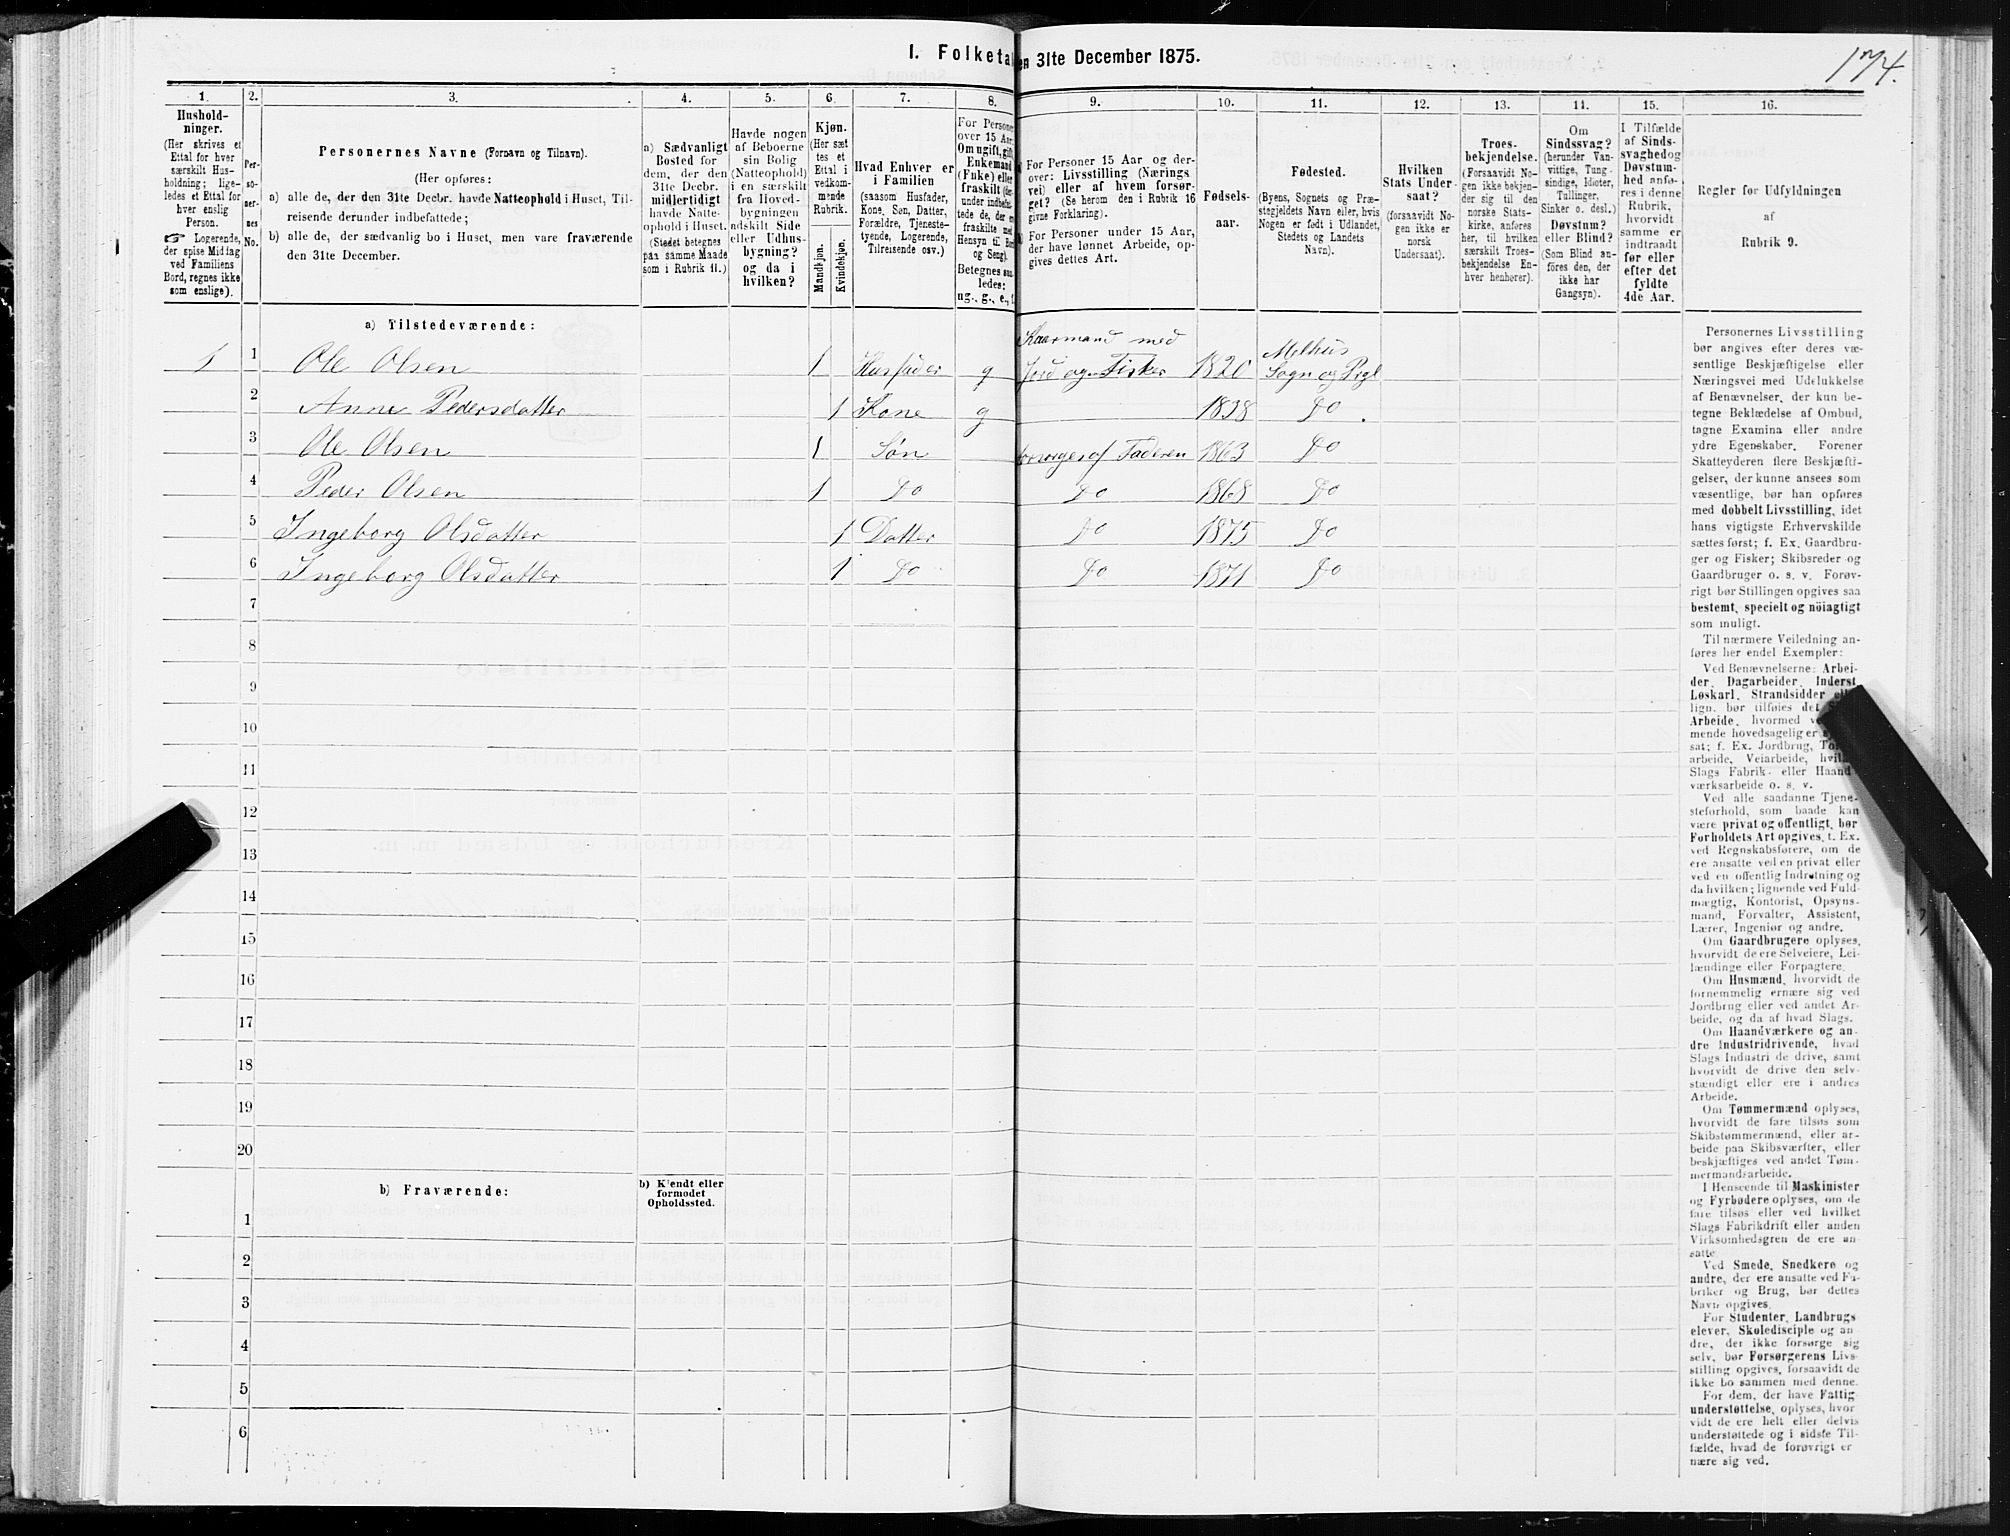 I. Folketal
en 31te December 1875.
174.
1.
2.
3.
4.
5.
6.
7.
8.
9.
10.
11.
12.
13.
14.
15.
16.
Hushold-
ninger.
(Her skrives et
Ettal for hver
særskilt Hus-
holdning; lige-
ledes et Ettal for
hver enslig
Person.
☞ Logerende,
der spise Middag
ved Familiens
Bord, regnes ikke
som enslige).
Per-
so-
ner-
nes
No.
Personernes Navne (Fornavn og Tilnavn).
(Her opføres:
a) alle de, der den 31te Decbr. havde Natteophold i Huset, Til-
reisende derunder indbefattede;
b) alle de, der sædvanlig bo i Huset, men vare fraværende
den 31te December.
a) Sædvanligt
Bosted for
dem, der den
31te Decbr.
midlertidigt
havde Natte-
ophold i Huset.
(Stedet betegnes
paa samme Maade
som i Rubrik 11.)
Havde nogen
af Beboerne
sin Bolig
(Natteophold)
i en særskilt
fra Hoved-
bygningen
adskilt Side
eller Udhus-
bygning?
og da i
hvilken?
Kjøn.
(Her sæt
tes et
Ettal i
vedkom-
mende
Rubrik.
Mandkjøn.
Kvindekjøn.
Hvad Enhver er
i Familien
(saasom Husfader,
Kone, Søn, Datter,
Forældre, Tjeneste-
tyende, Logerende,
Tilreisende osv.)
For Persone
over 15 Aar:
Om ugift, gift
Enkemand
(Enke) eller
fraskilt (der-
under indbefat-
tede de, der er
fraskilte med
Hensyn til Bord
og Seng).
Betegnes saa-
ledes:
ug., g., e., f.
For Personer 15 Aar og der-
over: Livsstilling (Nærings
vei) eller af hvem forsør-
get? (Se herom den i Rubrik 16
givne Forklaring).
For Personer under 15 Aar,
der have lønnet Arbeide, op-
gives dettes Art.
Fødsels-
aar.
Fødested.
(Byens, Sognets og Præ-
stegjeldets Navn eller, hvis
Nogen er født i Udlandet,
Stedets og Landets
Navn).
Hvilken
Stats Under-
saat?
(forsaavidt No-
gen ikke er
norsk
Undersaat).
Troes-
bekjendelse.
(Forsaavidt No-
gen ikke bekjen-
der sig til den
norske Stats-
kirke, anføres
her, til hvilken
særskilt Troes-
bekjendelse En-
hver henhører).
Om
Sindssvag?
(herunder Van-
vittige, Tung-
sindige, Idioter,
Tullinger,
Sinker o. desl.)
Døvstum?
eller Blind?
(Som Blind an-
føres den, der
ikke har
Gangsyn).
I Tilfælde
af Sinds-
svaghed og
Døvstum-
hed anfø-
res i denne
Rubrik,
hvorvidt
samme er
indtraadt
før eller
efter det
fyldte
4de Aar.
Regler for Udfyldningen
af
Rubrik 9.
a) Tilstedeværende:
Kaarmand med
Melhus
1 1 Ole Olsen 1 Husfader g Jord og Fisker 1820 Sogn og Prgl
2 Anne Pedersdatter 1 Kone g 1838 Do
3 Ole Olsen 1 Søn forsørges af Faderen 1863 Do
4 Peder Olsen 1 Do Do 1868 Do
5 Ingeborg Olsdatter 1 Datter Do 1875 Do
6 Ingeborg Olsdatter 1 Do Do 1871 Do
7
8
9
10
11
12
13
14
15
16
17
18
19
20
b) Fraværende:
b) Kjendt eller
formodet
Opholdssted.
1
2
3
4
5
6
Personernes Livsstilling
bør angives efter deres væ-
sentlige Beskjæftigelse eller
Næringsvei med Udelukkelse
af Benævnelser, der kun be-
tegne Beklædelse af Ombud,
tagne Examina eller andre
ydre Egenskaber. Forener
Skatteyderen flere Beskjæfti-
gelser, der kunne ansees som
væsentlige, bør han opføres
med dobbelt Livsstilling, idet
hans vigtigste Erhvervskilde
sættes først; f. Ex. Gaardbru-
ger og Fisker; Skibsreder og
Gaardbruger o. s. v. Forøv-
rigt bør Stillingen opgives saa
bestemt, specielt og nöiagtigt
som muligt.
Til nærmere Veiledning an-
føres her endel Exempler:
Ved Benævnelserne: Arbei-
der, Dagarbeider, Inderst,
Løskarl, Strandsidder
lign. bør tilføies det
Arbeide, hvormed
mende hovedsagelig er
sat; f. Ex. Jordbrug,
arbeide, Veiarbeide,
Slags Fabrik- eller Haand-
værksarbeide o. s. v.
Ved alle saadanne Tjene-
steforhold, som baade kan
være privat og offentligt, bør
Forholdets Art opgives, f. Ex.
ved Regnskabsførere, om de
ere ansatte ved en privat eller
ved en offentlig Indretning og
da hvilken; lignende ved Fuld-
mægtig, Kontorist, Opsyns-
mand, Forvalter, Assistent,
Lærer, Ingeniør og andre.
Om Gaardbrugere oplyses,
hvorvidt de ere Selveiere, Lei-
lændinge eller Forpagtere.
Om Husmænd, hvorvidt de
fornemmelig ernære sig ved
Jordbrug eller ved andet Ar-
beide, og da af hvad Slags.
Om Haandværkere og an-
dre Industridrivende, hvad
Slags Industri de drive, samt
hvorvidt de drive den selv-
stændigt eller ere i andres
Arbeide.
Om Tømmermænd oplyses,
hvorvidt de fare tilsøs som
Skibstømmermænd, eller ar-
beide paa Skibsværfter, eller
beskjæftiges ved andet Tøm-
mermandsarbeide.
I Henseende til Maskinister
og Fyrbødere oplyses, om de
fare tilsøs eller ved hvilket
Slags Fabrikdrift eller anden
Virksomhedsgren de ere an-
satte.
Ved Smede, Snedkere og
andre, der ere ansatte ved Fa-
briker og Brug, bør dettes
Navn opgives.
For Studenter, Landbrugs
elever, Skoledisciple og an
dre, der ikke forsørge sig
selv, bør Forsørgerens Livs-
stilling opgives, forsaavidt de
ikke bo sammen med denne.
For dem, der have Fattig
understøttelse, oplyses, hvor
vidt de ere helt eller delvis
understøttede og i sidste Til-
fælde, hvad de forøvrigt er
nære sig ved.